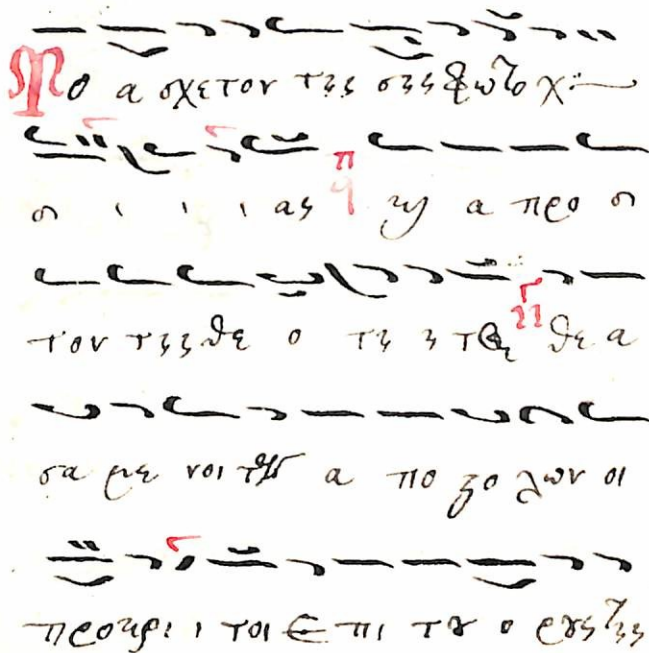 Το α σχετον της σης φωτο χυ
σι ι ι ι ας και α προ σι
τον της θε ο τη η τος θε α
σα με νοι των α πο στο λων οι
προκρι ι τοι επι του ο ρους της